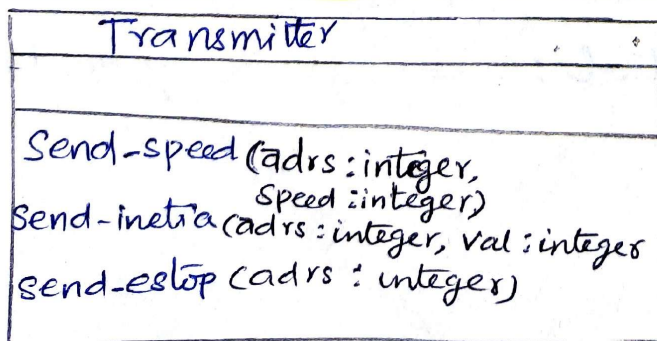 Transmitter
Send-speed (adrs : integer,
speed : integer)
Send-inetia (adrs : integer, val : integer
send-estop (adrs : integer)